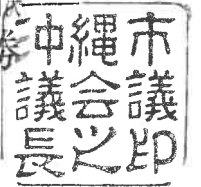 沖縄市
議会議
長之印